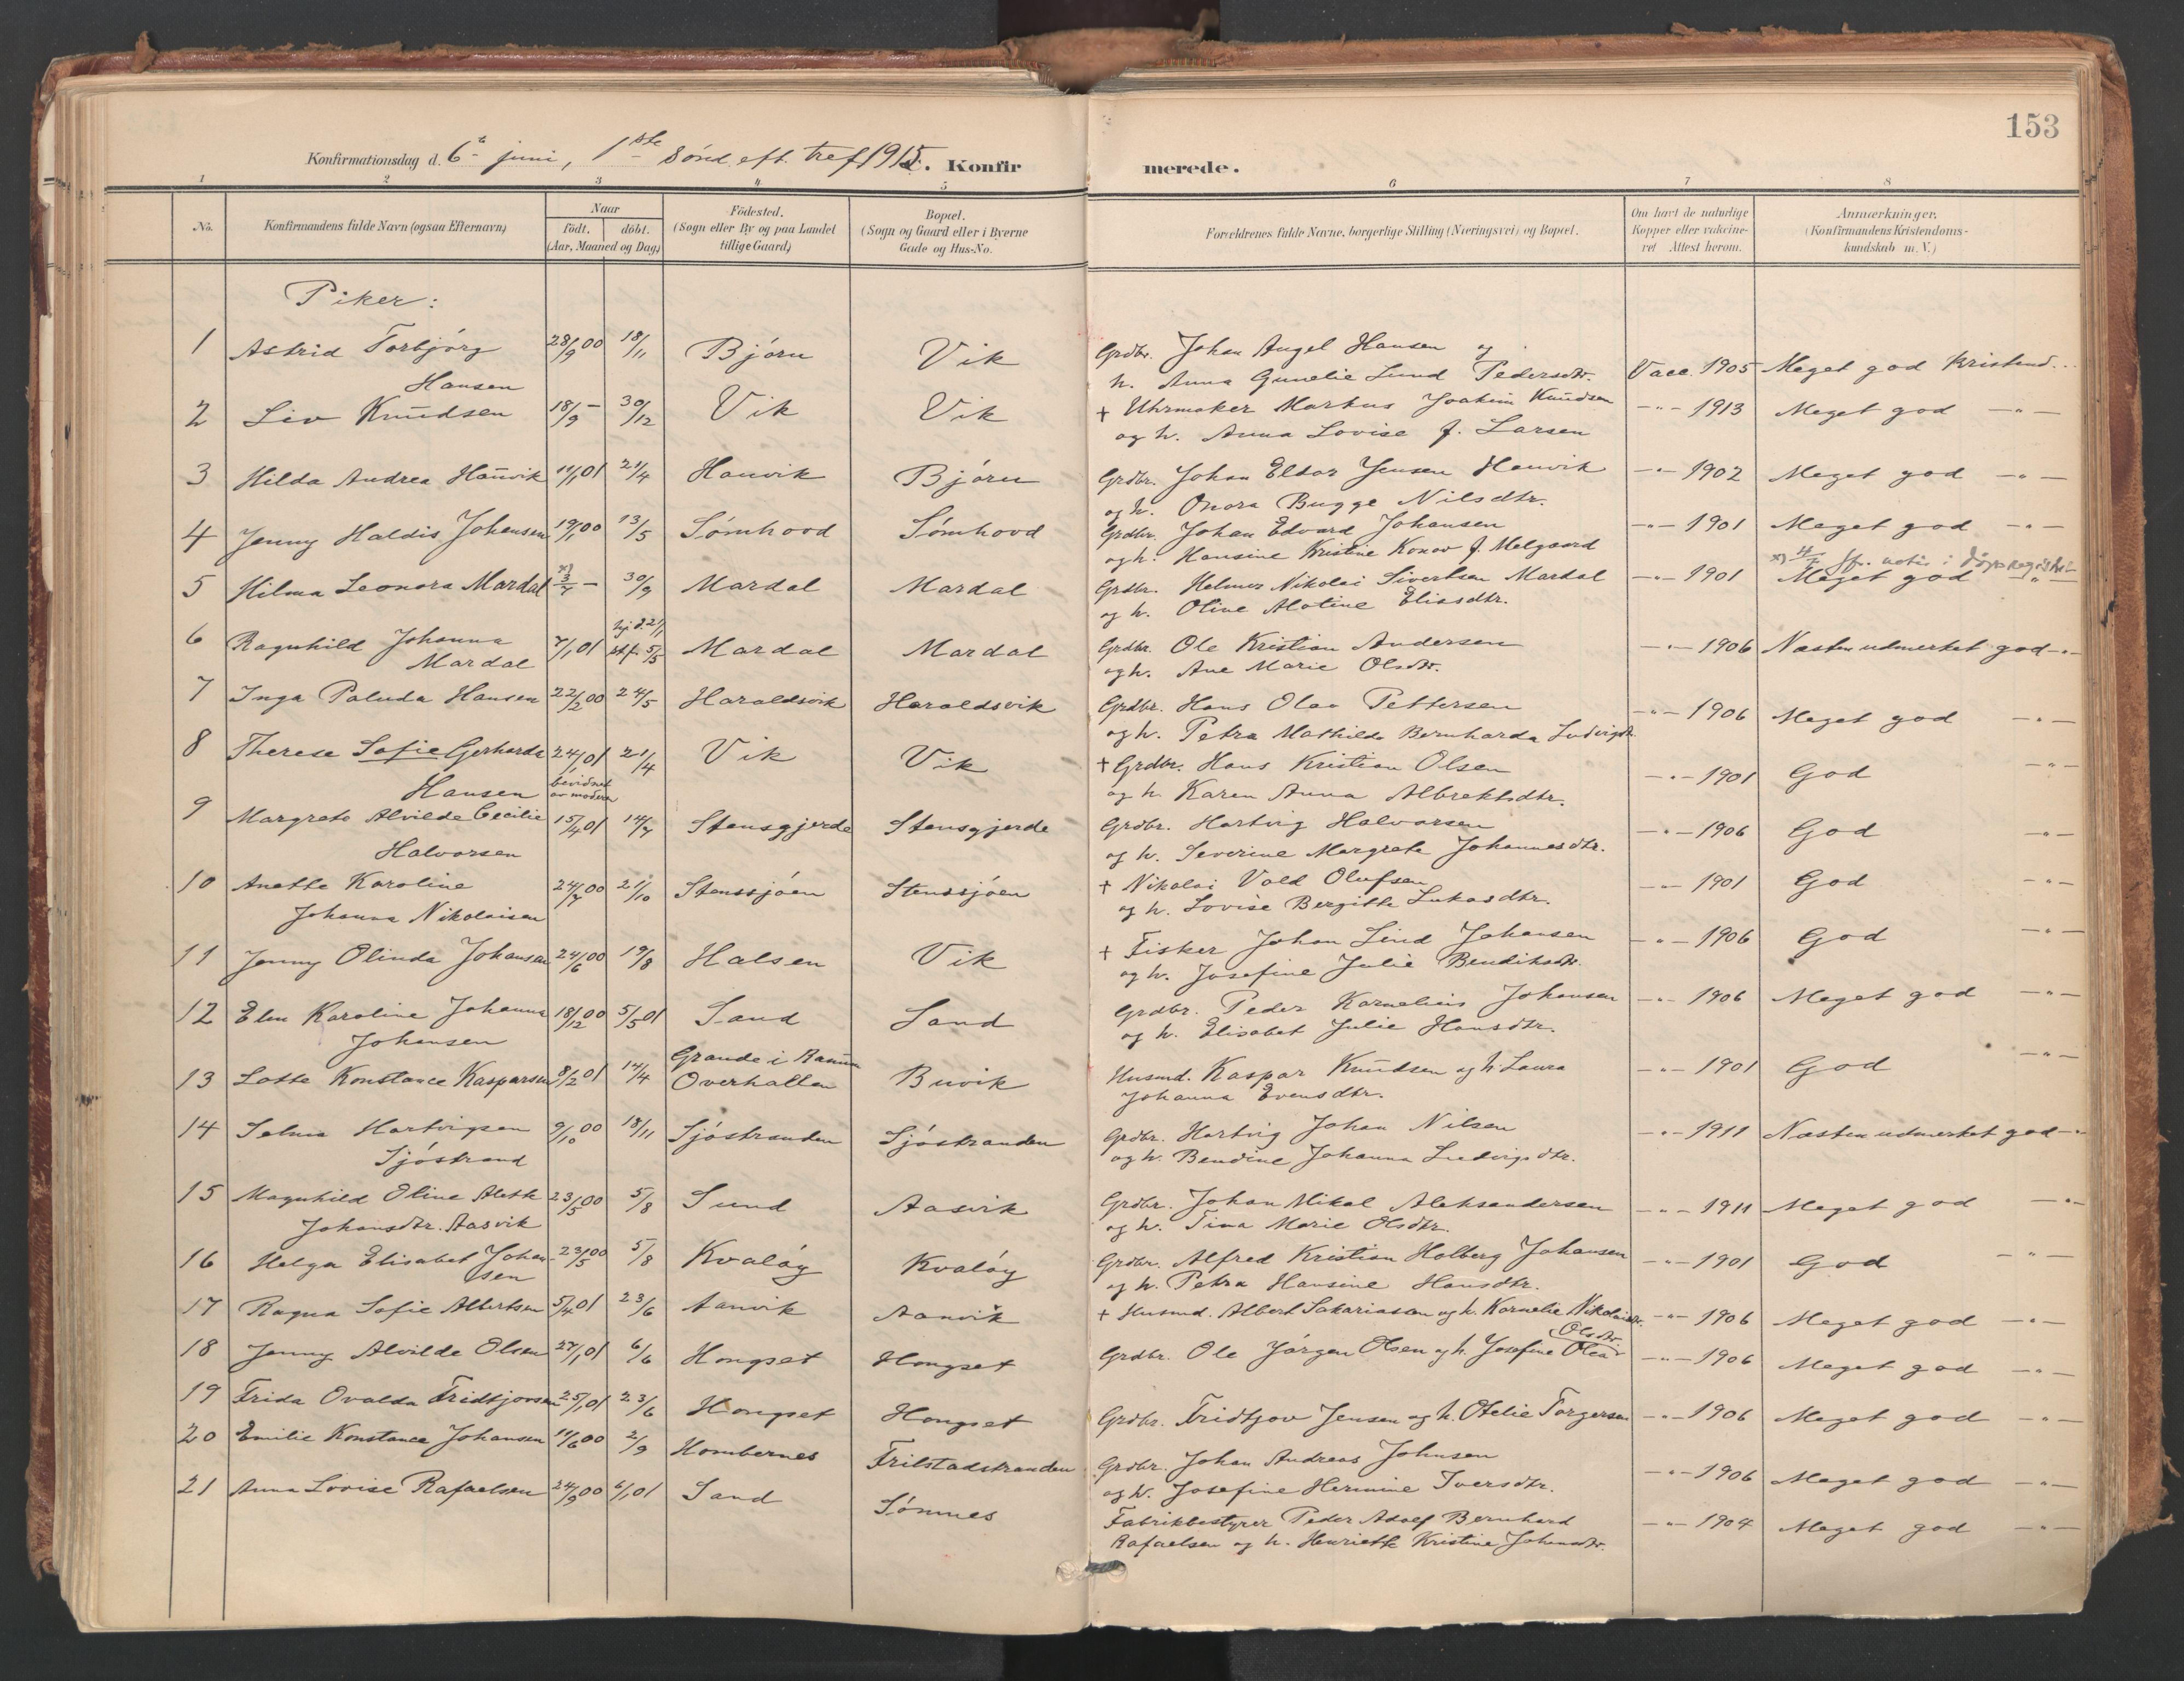 153
Konfirmationsdag d. 6te juni, 1ste Sönd. eft. tref. 1915. Konfirmerede.
1 2 3 4 5 6 7 8
No. Konfirmandens fulde Navn (ogsaa Efternavn) Naar födt. döbt. (Aar, Maaned og Dag) Födested. (Sogn eller By og paa Landet tillige Gaard) Bopæl. (Sogn og Gaard eller i Byerne Gade og Hus-No. Forældrenes fulde Navne, borgerlige Stilling (Næringsvei) og Bopæl. Om havt de naturlige Kopper eller vakcineret Attest herom. Anmærkninger. (Konfirmandens Kristendomskundskab m. V.)
Piker:
1 Astrid Torbjörg Hansen 28/9 00 18/11 Björn Vik Grdbr. Johan Angel Hansen og h. Anna Gunelie Lund Pedersdtr. Vacc. 1905 Meget god Kristend...
2 Liv Knudsen 18/9 – 30/12 Vik Vik † Uhrmaker Markus Joakim Knudsen og h. Anna Lovise f. Larsen –"– 1913 Meget god –"–
3 Hilda Andrea Hauvik 11/1 01 21/4 Hauvik Björn Grdbr. Johan Eldor Jensen Hauvik og h. Onora Bugge Nilsdtr. –"– 1902 Meget god –"–
4 Jenny Haldis Johansen 19/1 00 13/5 Sömhovd Sömhovd Grdbr. Johan Edvard Johansen og h. Hansine Kristine Konow f. Melgaard –"– 1901 Meget god –"–
5 Hilma Leonora Mardal x) 3/7 – 30/9 Mardal Mardal Grdbr. Helmer Nikolai Sivertsen Mardal og h. Olive Alotine Eliasdtr. –"– 1901 x) 4/7 jfr. notis i döpsregistret Meget god –"–
6 Ragnhild Johanna Mardal 7/1 01 hj. d. 2/1 st.f. 5/5 Mardal Mardal Grdbr. Ole Kristian Andersen og h. Ane Marie Olsdtr. –"– 1906 Næsten udmerket god –"–
7 Inga Paluda Hansen 22/2 00 24/5 Haraldsvik Haraldsvik Grdbr. Hans Olaa Pettersen og h. Petra Mathilde Bernharda Ludvigsdtr. –"– 1906 Meget god –"–
8 Therese Sofie Gerharda Hansen 24/1 01 bevidnet av moderen 21/4 Vik Vik † Grdbr. Hans Kristian Olsen og h. Karen Anna Albrektsdtr. –"– 1901 God –"–
9 Margrete Alvilde Cecilie Halvorsen 15/4 01 14/7 Stensgjerde Stensgjerde Grdbr. Hartvig Halvorsen og h. Severine Margrete Johannesdtr. –"– 1906 God –"–
10 Anette Karoline Johanna Nikolaisen 24/7 00 21/10 Stenssjöen Stenssjöen † Nikolai Vold Olufsen og h. Lovise Bergitte Lukasdtr. –"– 1901 God –"–
11 Jenny Olinda Johansen 24/6 00 19/8 Halsen Vik † Fisker Johan Lind Johansen og h. Josefine Julie Bendiksdtr. –"– 1906 God –"–
12 Elen Karoline Johanna Johansen 18/12 00 5/5 01 Sand Sand Grdbr. Peder Kornelius Johansen og h. Elisabet Julie Hansdtr. –"– 1906 Meget god –"–
13 Lotte Konstance Kasparsen 8/2 01 14/4 Grande i Ranum Overhallen Buvik Husmd. Kaspar Knudsen og h. Laura Johanna Evensdtr. –"– 1901 God –"–
14 Selma Hartvigsen Sjöstrand 9/10 00 18/11 Sjöstranden Sjöstranden Grdbr. Hartvig Johan Nilsen og h. Bendine Johanna Ludvigsdtr. –"– 1911 Næsten udmerket god –"–
15 Magnhild Oline Aleth Johansdtr. Aasvik 23/5 00 5/8 Sund Aasvik Grdbr. Johan Mikal Aleksandersen og h. Tina Marie Olsdtr. –"– 1911 Meget god –"–
16 Helga Elisabet Johansen 23/5 00 5/8 Kvalöy Kvalöy Grdbr. Alfred Kristian Holberg Johansen og h. Petra Hansine Hansdtr. –"– 1901 God –"–
17 Ragna Sofie Albertsen 5/4 01 23/6 Aanvik Aanvik † Husmd. Albert Sakariassen og h. Kornelie Nikolaisdtr. –"– 1906 Meget god –"–
18 Jenny Alvilde Olsen 27/1 01 6/6 Hongset Hongset Grdbr. Ole Jörgen Olsen og h. Josefine Olea Olsdtr. –"– 1906 Meget god –"–
19 Frida Ovalda Fridtjovsen 25/1 01 23/6 Hongset Hongset Grdbr. Fridtjov Jensen og h. Otelie Torgersen –"– 1906 Meget god –"–
20 Emilie Konstance Johansen 11/6 00 2/9 Hombernes Trilstadstranden Grdbr. Johan Andreas Johnsen og h. Josefine Hermine Iversdtr. –"– 1906 Meget god –"–
21 Anna Lovise Rafaelsen 24/9 00 6/1 01 Sand Sömnes Fabrikbestyrer Peder Adolf Bernhard Rafaelsen og h. Henriette Kristine Johansdtr. –"– 1904 Meget god –"–